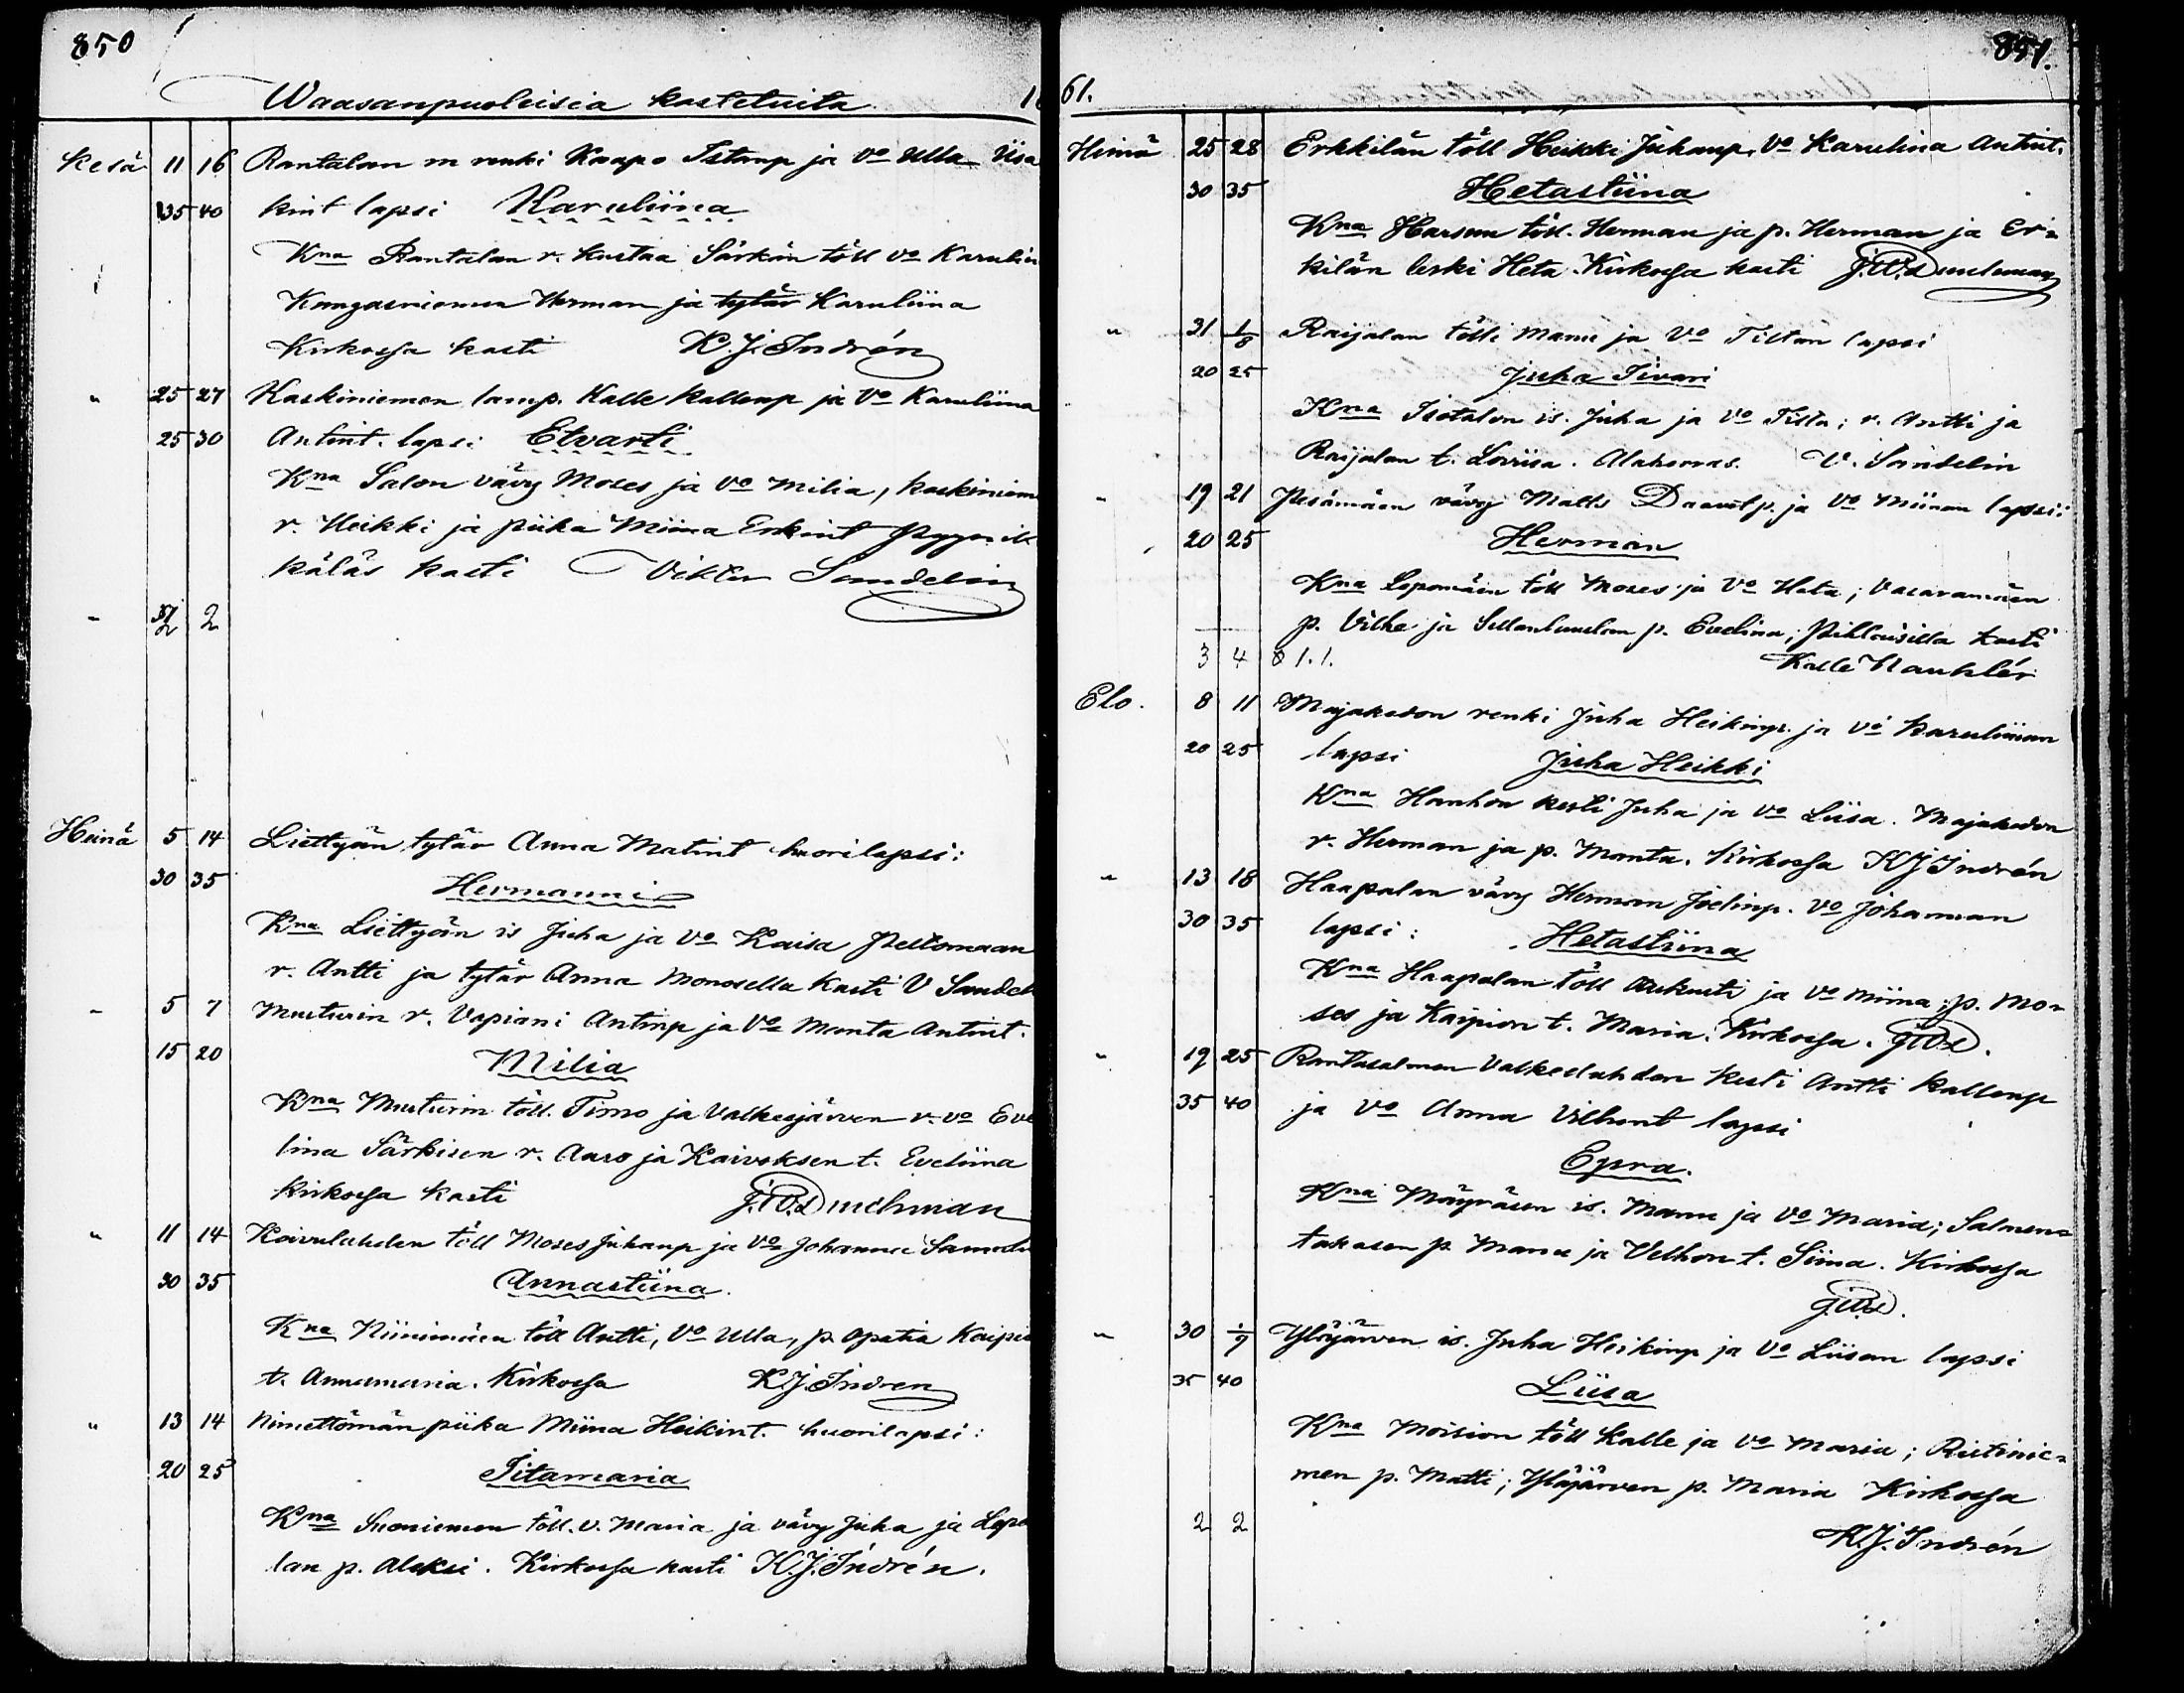 850
Waasanpuoleisia kastetuita 18
Kesä 11 16 Rantalan m renki Kaapo Tstanp ja Vo Ulla Iisa
35 40 kint lapsi Karuliina
Kna Rantalan r. Kustaa Särkän töll vo Karulin
Kangasniemen Herman ja tytär Karuliina
Kirkossa kasti K. J. Indrén
" 25 27 Kaskiniemen lamp. Kalle Kallenp ja Vo Karuliina
25 30 Antint. lapsi Etvarti
Kna Salon vävy Moses ja vo Milia, Kaskiniem
r. Heikki ja piika Miina Erkint
kälás kasti Viktor Sandelin
- 2 2
Heinä 5 14 Liettyän tytär Anna Matint huorilapsi:
30 35 Hermanni
Kna Liettyän is Juha ja vo Kaisa Peltomaan
r. Antti ja tytär Anna Monosella kasti V Sandel
- 5 7 Musturin r. Vapiani Antinp ja Vo Manta Antint.
15 20 Milia
Kna Musturin töll. Timo ja Valkeajärven r. vo Eve
lina Särkisen r. Aaro ja Kaivoksen t. Eveliina
Kirkossa kasti J. W. Duchman
" 11 14 Koivulahden töll Moses Juhanp ja Vo Johanna
30 35 Annastiina.
Kna Niinimäen töll Antti, Vo Ulla, p. Apatia Kaipia
t. Annamaria. Kirkossa K. J. Indren
" 13 14 Nimettömän piika Miina Heikint. huorilapsi:
20 25 Iitamaria
Kna Suoniemen töll. v. Maria ja vävy Juha ja Lepo
lan p. Aleksi. Kirkossa kasti K. J. Indrén.
61. 851.
Heinä 25 28 Erkkilän töll Heikki Juhanp. Vo Karulina Antint.
30 35 Hetastiina
Kna Harsun töll. Herman ja p. Herman ja Er=
kilän leski Heta. Kirkossa kasti
" 31 1/8 Raijalan tölli Manu ja Vo Tiltan lapsi
20 25 Juha Iivari
Kna Isotalon is. Juha ja vo Tilta; r. Antti ja
Raijalan t. Loviisa. V. Sandelin
- 19 21 Pesämäen vävy Matts Daavitp. ja Vo Miinan lapsi:
20 25 Herman
Kna Lepomäen töll Moses ja Vo Heta; Vasaramäen
p. Vilhe ja p. Evelina; kasti
3 4 Kalle
Elo. 8 11 Majakedon renki Juha Heikinp. ja Vo Karuliinan
20 25 lapsi Juha Heikki
Kna Hanhon kesti Juha ja vo Liisa. Majakedon
r. Herman ja p. Manta. Kirkossa K J Indrén
" 13 18 Haapalan vävy Herman Joelinp. Vo Johannan
30 35 lapsi: Hetastiina
Kna Haapalan töll Aukusti ja vo Miina; p. Mo=
ses ja Kaipion t. Maria. Kirkossa.
" 19 25 Rantasalmen Valkeelahden kesti Antti Kallenp
35 40 ja vo Anna Vilhont lapsi
Epra.
Kna Mäyräsen is. Manu ja Vo Maria; Salmen=
takasen p. Manu ja Velhon t. Siina. Kirkossa
" 30 1/9 Yläjärven is. Juha Heikinp ja Vo Liisan lapsi
35 40 Liisa
Kna Moision töll Kalle ja vo Maria; Riitinie=
men p. Matti; Yläjärven p. Maria Kirkossa
2 2 K. J. Indrén